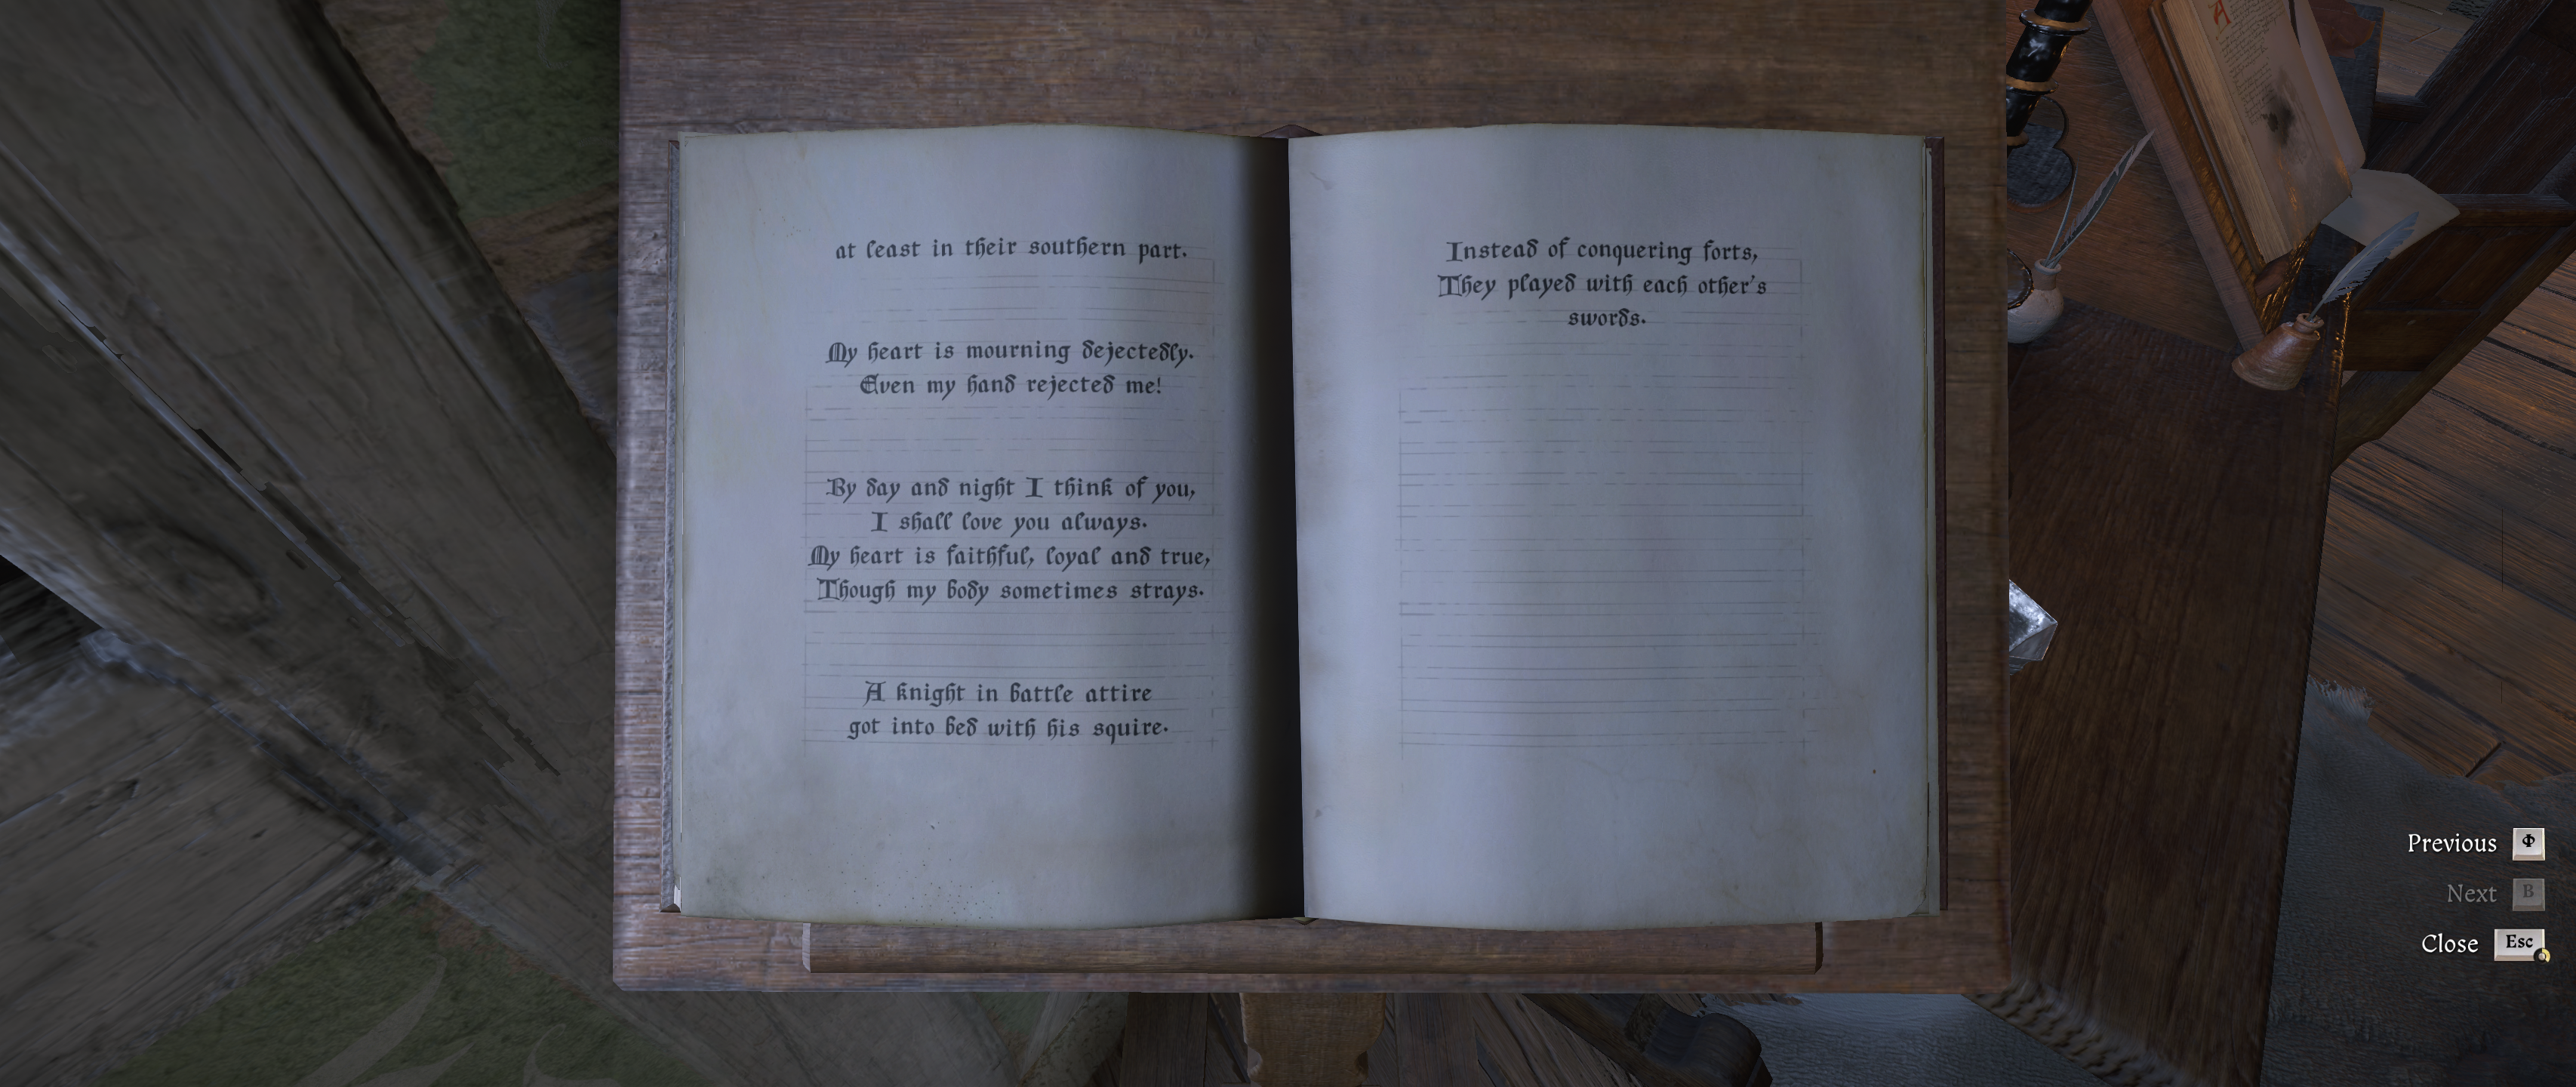 at least in their southern part.
My heart is mourning dejectedly.
Even my hand rejected me!
By day and night I think of you,
I shall love you always.
My heart is faithful, loyal and true,
Though my body sometimes strays.
A knight in battle attire
got into bed with his squire.
Instead of conquering forts,
They played with each other's
swords.
Previous Ф
Next B
Close Esc